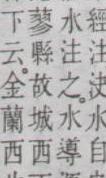 經注決水自
水注之水導源
蓼縣故城西
下云金蘭西